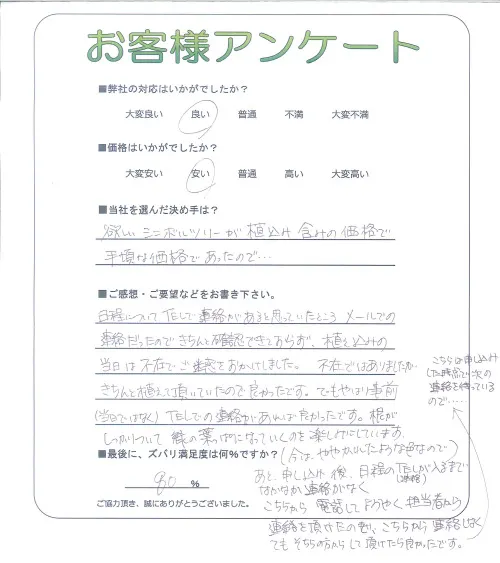 お客様アンケート
■弊社の対応はいかがでしたか？
大変良い 良い 普通 不満 大変不満
■価格はいかがでしたか？
大変安い 安い 普通 高い 大変高い
■当社を選んだ決め手は？
欲しいシンボルツリーが植込み含みの価格で
手頃な価格であったので…
■ご感想・ご要望などをお書き下さい。
日程についてTELで連絡があると思っていたところ メールでの
連絡だったのできちんと確認できておらず、植え込みの
当日は不在でご迷惑をおかけしました。 不在ではありましたが
きちんと植えて頂いていたので良かったです。でもやはり事前
(当日ではなく)TELでの連絡があれば良かったです。根が
しっかりついて 緑の葉っぱになっていくのを楽しみにしています。
(今は、ややかれたような色なので)
■最後に、ズバリ満足度は何%ですか？
80 %
ご協力頂き、誠にありがとうございました。
あと、申し込み後、日程のTELが入るまで
なかなか連絡がなく
こちらから 電話してようやく担当者から
連絡を頂けたのも、こちらから連絡しなく
てもそちらの方からして頂けたら良かったです。
こちらは申し込み
した時点で次の
連絡を待っている
ので……